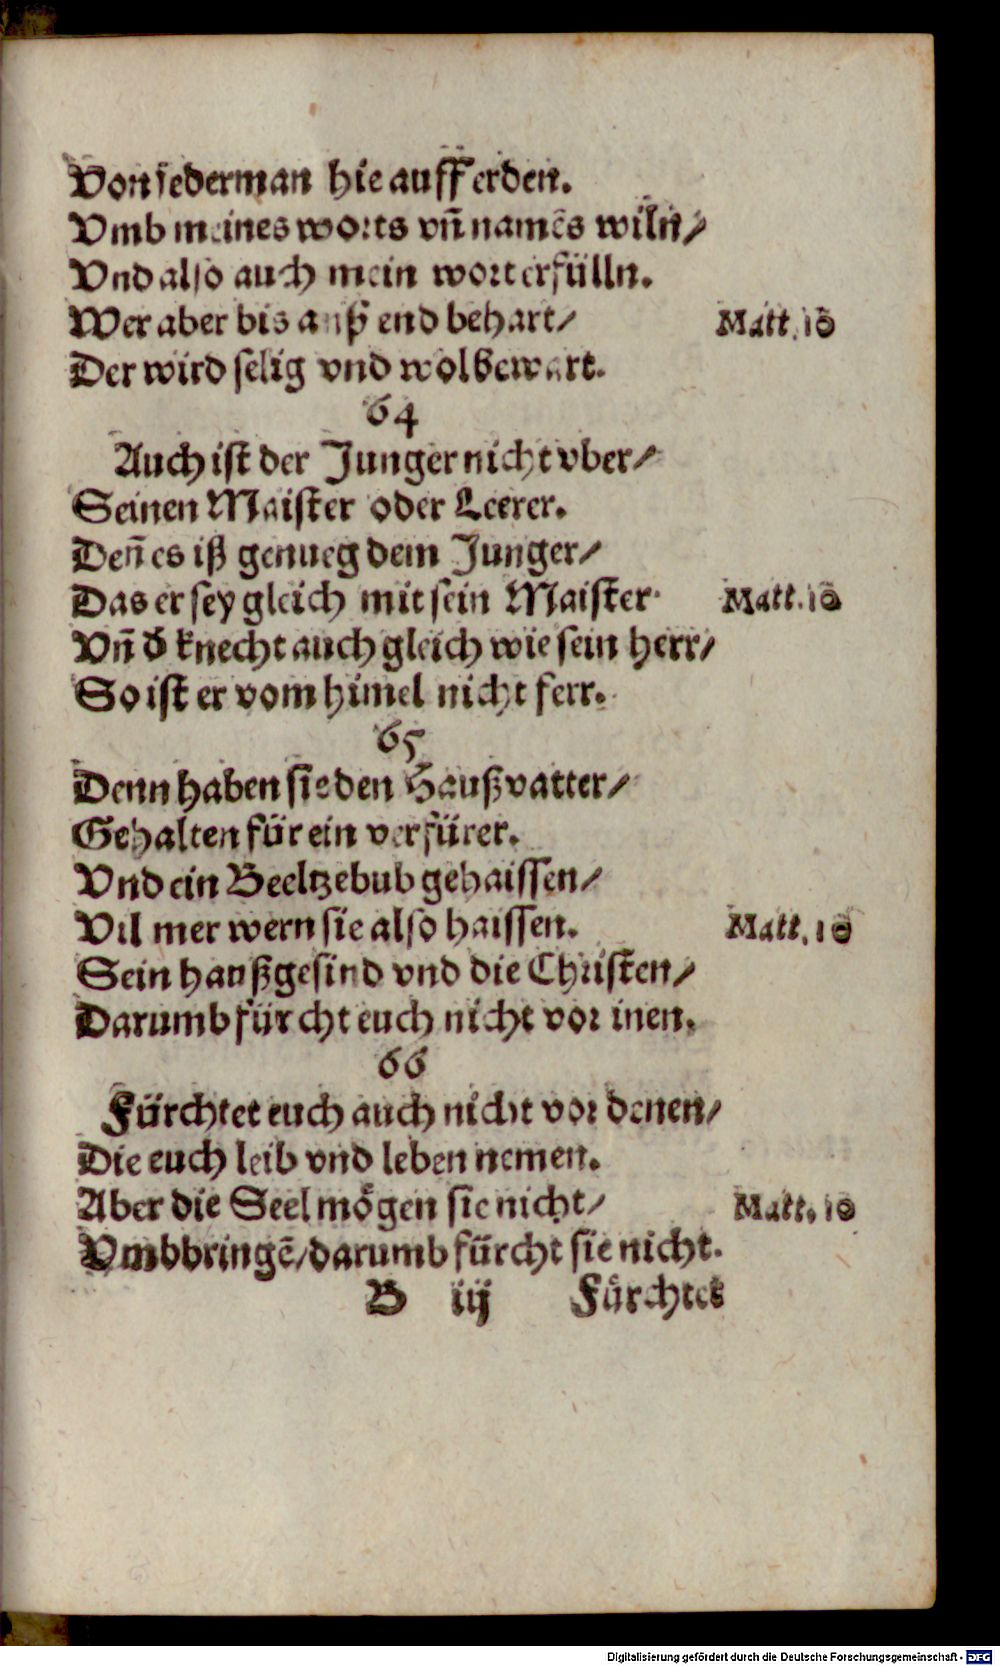 Von jederman hie auff erden.
Vmb meines worts vñ namēs wiln/
Vnd also auch mein wort erfülln.
Wer aber bis auß end behart/ Matt. 10
Der wird selig vnd wol bewart.
64
Auch ist der Junger nicht vber/
Seinen Maister oder Leerer.
Deñ es iß genueg dem Junger/
Das er sey gleich mit sein Maister. Matt. 10
Vñ d̄ knecht auch gleich wie sein herr/
So ist er vom himel nicht ferr.
65
Denn haben sie den Haußvatter/
Gehalten für ein verfürer.
Vnd ein Beeltzebub gehaissen/
Vil mer wern sie also haissen. Matt. 10
Sein haußgesind vnd die Christen/
Darumb fürcht euch nicht vor inen.
66
Fürchtet euch auch nicht vor denen/
Die euch leib vnd leben nemen.
Aber die Seel mögen sie nicht/ Matt. 10
Vmbbringē/darumb fürcht sie nicht.
B iij Fürchtet
Digitalisierung gefördert durch die Deutsche Forschungsgemeinschaft - DFG